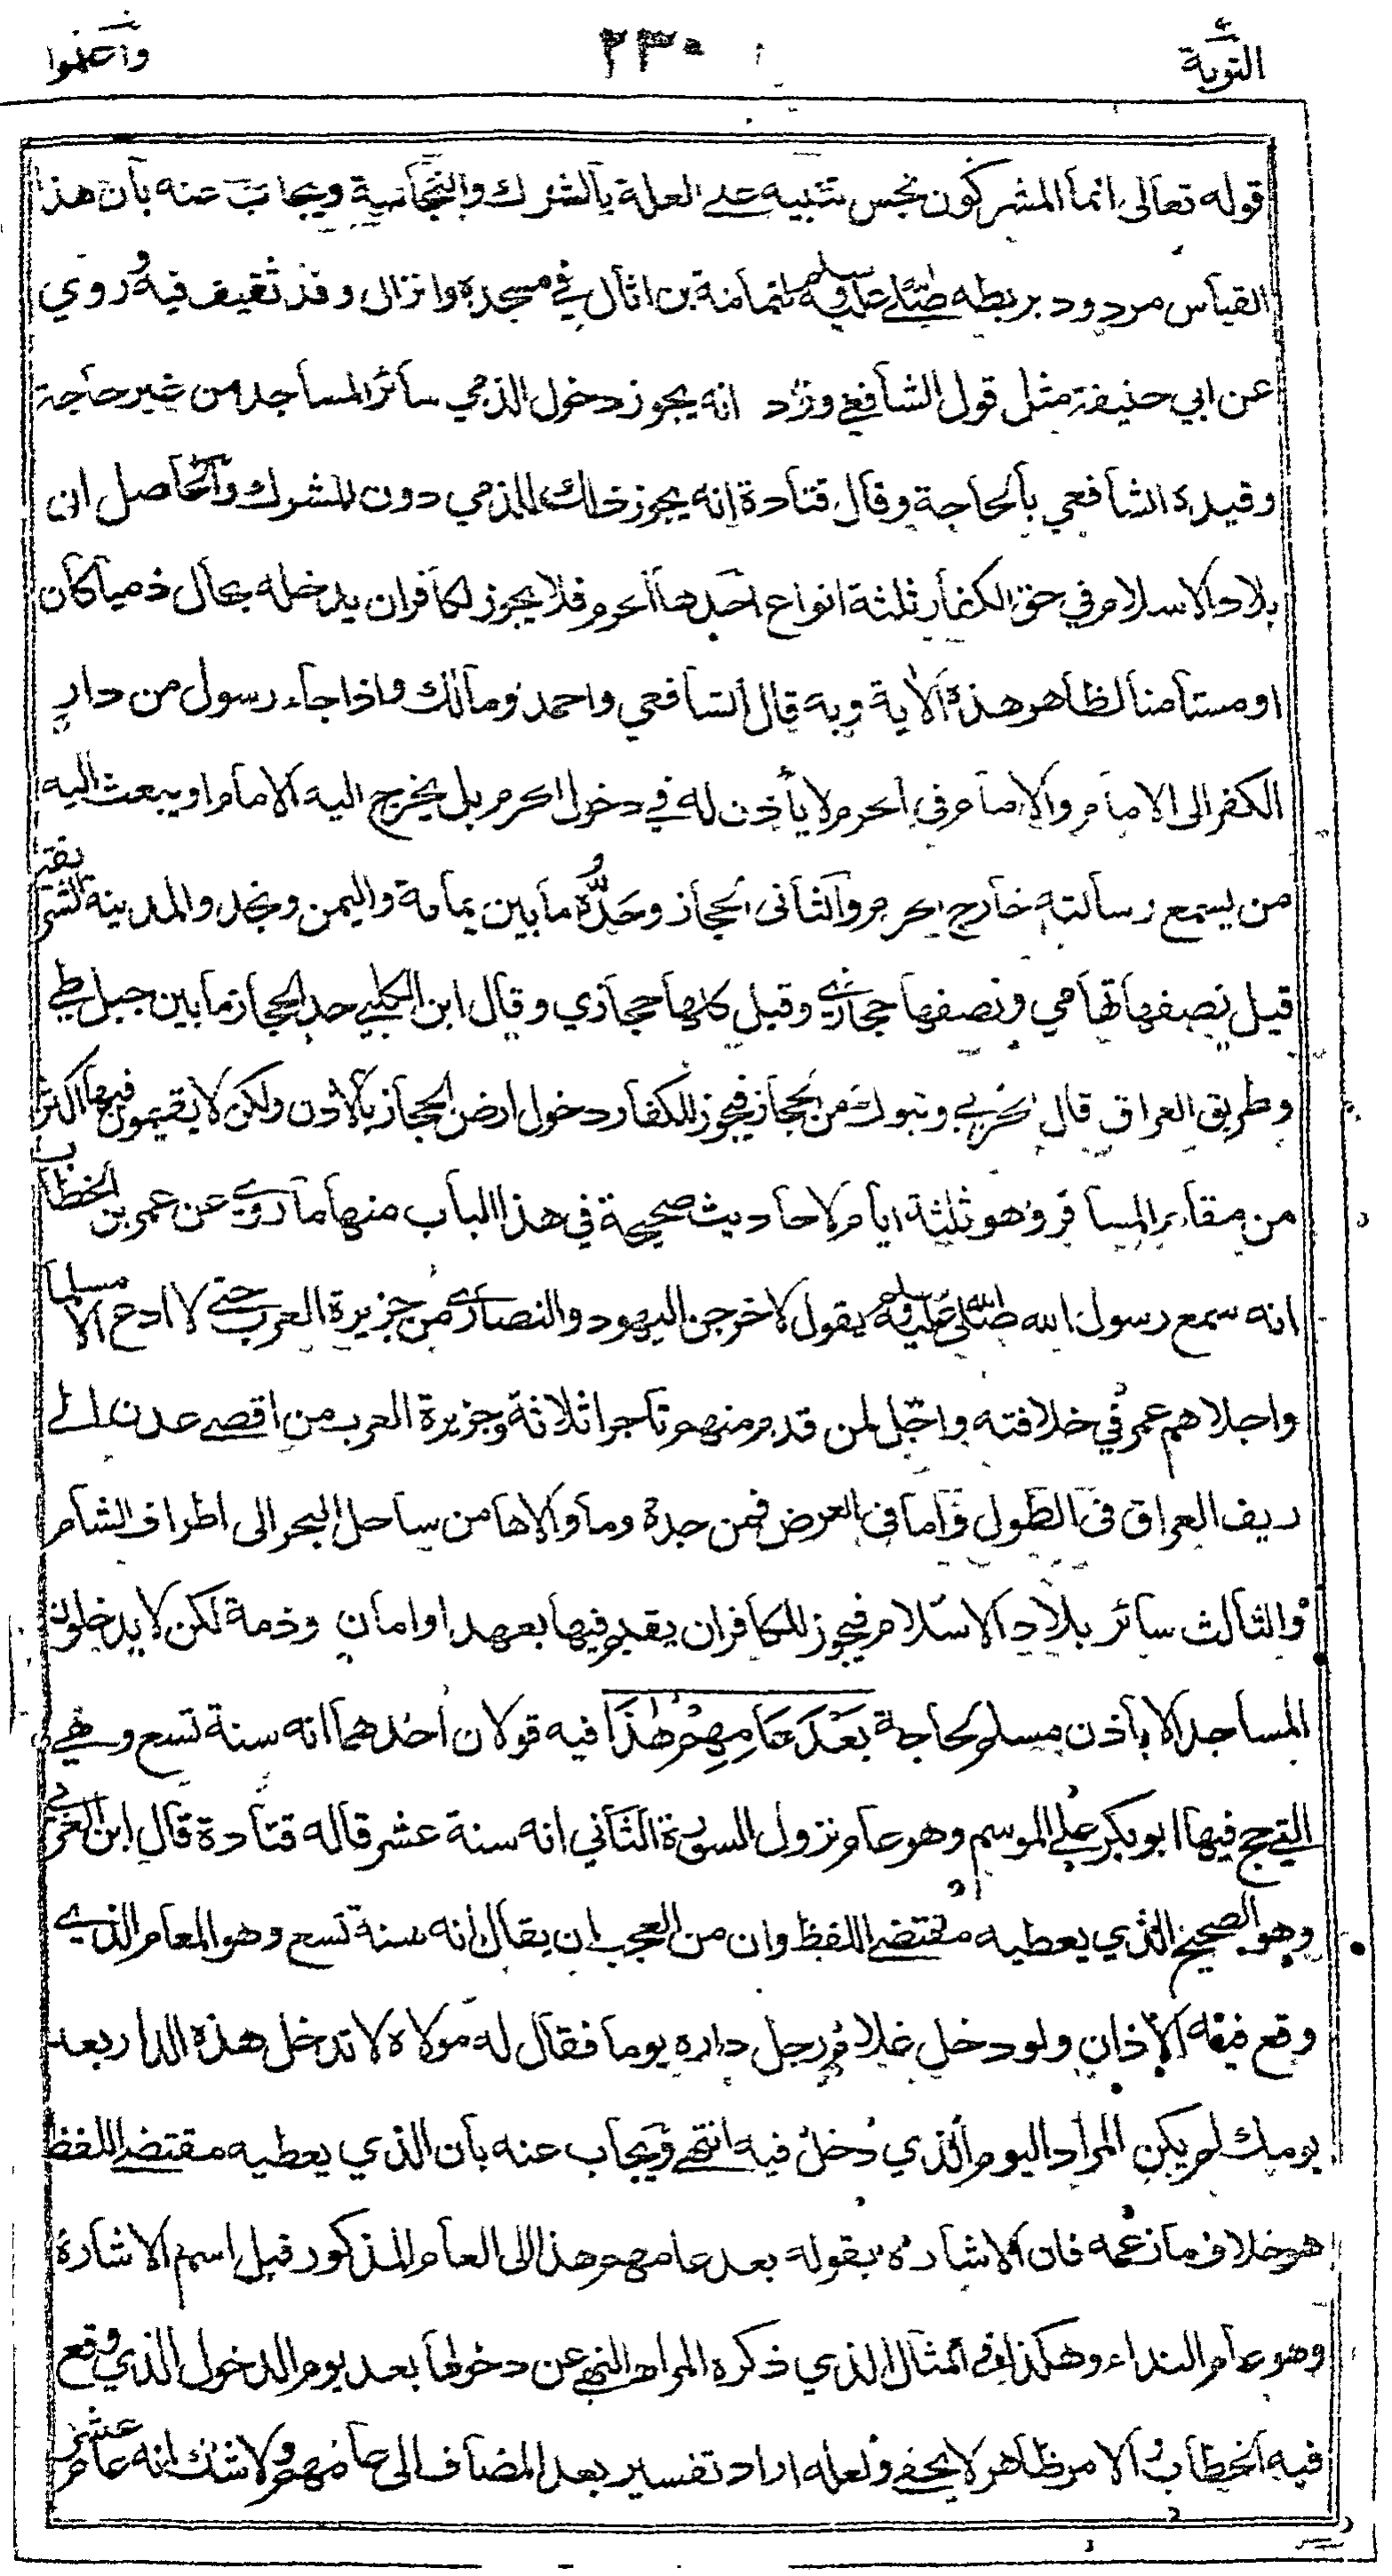 التوبة ٢٣٠ واعلموا
قوله تعالى انما المشركون نجس تنبيه على العلة بالشرك والنجاسة ويجاب عنه بان هذا
القياس مردود بربطه صلى الله عليه وسلم لثمامة بن اثال في مسجده وانزال وفد ثقيف فيه وروي
عن ابي حنيفة مثل قول الشافعي وزاد انه يجوز دخول الذمي سائر المساجد من غير حاجة
وقيده الشافعي بالحاجة وقال قتادة انه يجوز ذلك للذمي دون المشرك والحاصل ان
بلاد الاسلام في حق الكفار ثلثة انواع احدها الحرم فلا يجوز لكافر ان يدخله بحال ذميا كان
او مستامنا لظاهر هذه الاية وبه قال الشافعي واحمد ومالك واذا جاء رسول من دار
الكفر الى الامام والامام في الحرم لا يأذن له في دخول الحرم بل يخرج اليه الامام او يبعث اليه
من يسمع رسالته خارج الحرم والثاني الحجاز وحدّه ما بين يمامة واليمن ونجد والمدينة الشريفة
قيل نصفها تهامي ونصفها حجازي وقيل كلها حجازي وقال ابن الكلبي حد الحجاز ما بين جبل طي
وطريق العراق قال الحربي وتبوك من الحجاز فيجوز للكفار دخول ارض الحجاز بالاذن ولكن لا يقيمون فيها اكثر
من مقام المسافر وهو ثلثة ايام لاحاديث صحيحة في هذا الباب منها ما روي عن عمر بن الخطاب
انه سمع رسول الله صلى الله عليه وسلم يقول لاخرجن اليهود والنصارى من جزيرة العرب حتى لا ادع الا مسلما
واجلاهم عمر في خلافته واجّل لمن قدم منهم تاجرا ثلاثة وجزيرة العرب من اقصى عدن الى
ريف العراق في الطول واما في العرض فمن جدة وما والاها من ساحل البحر الى اطراف الشام
والثالث سائر بلاد الاسلام فيجوز للكافر ان يقيم فيها بعهد او امان وذمة لكن لا يدخلون
المساجد الا باذن مسلم لحاجة بَعْدَ عَامِهِمْ هٰذَا فيه قولان احدهما انه سنة تسع وهي
التي حج فيها ابو بكر على الموسم وهو عام نزول السورة الثاني انه سنة عشر قاله قتادة قال ابن العربي
وهو الصحيح الذي يعطيه مقتضى اللفظ وان من العجب ان يقال انه سنة تسع وهو العام الذي
وقع فيه الاذان ولو دخل غلام رجل داره يوما فقال له مولاه لا تدخل هذه الدار بعد
يومك لم يكن المراد اليوم الذي دخل فيه انتهى ويجاب عنه بان الذي يعطيه مقتضى اللفظ
هو خلاف ما زعمه فان الاشارة بقوله بعد عامهم هذا الى العام المذكور قبل اسم الاشارة
وهو عام النداء وهكذا في المثال الذي ذكره المراد النهي عن دخولها بعد يوم الدخول الذي وقع
فيه الخطاب والامر ظاهر لا يخفى ولعله اراد تفسير بعد المضاف الى عامهم ولا شك انه عام عشر